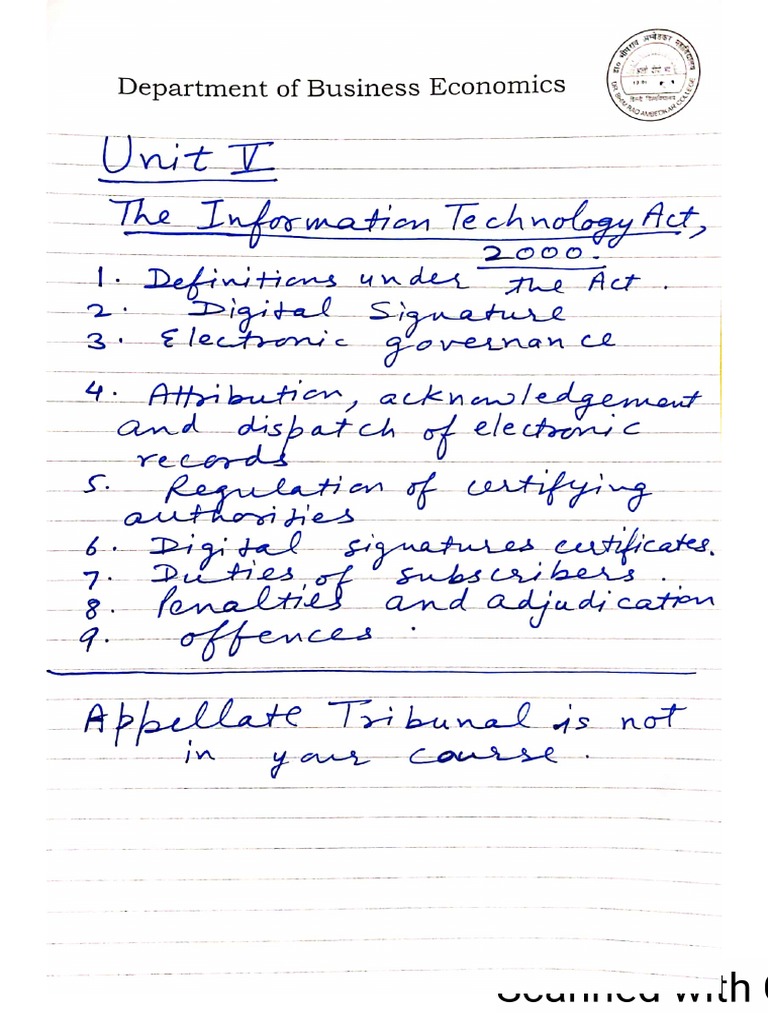 Department of Business Economics
डा० भीमराव अम्बेडकर महाविद्यालय
DR. BHIM RAO AMBEDKAR COLLEGE
Unit V
The Information Technology Act,
2000.
1. Definitions under the Act.
2. Digital Signature
3. Electronic governance
4. Attribution, acknowledgement
and dispatch of electronic
records
5. Regulation of certifying
authorities
6. Digital signatures certificates.
7. Duties of subscribers.
8. Penalties and adjudication
9. offences.
Appellate Tribunal is not
in your course.
Scanned with